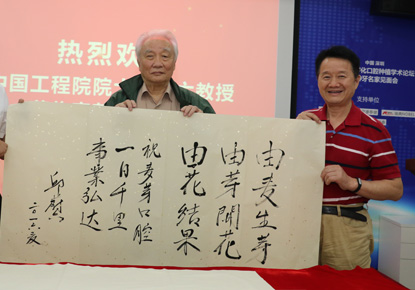 热烈欢
中国工程院院
教授
中国·深圳
化口腔种植学术论坛
牙名家见面会
支持单位
由麦生芽
由芽開花
由花結果
祝麦芽口腔
一日千里
事業弘达
邱蔚六
二〇一六夏